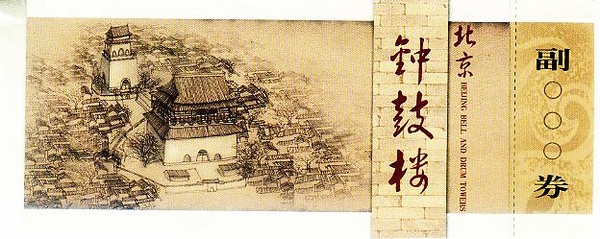 钟鼓楼
北京
BEIJING BELL AND DRUM TOWERS
副
○○○
券